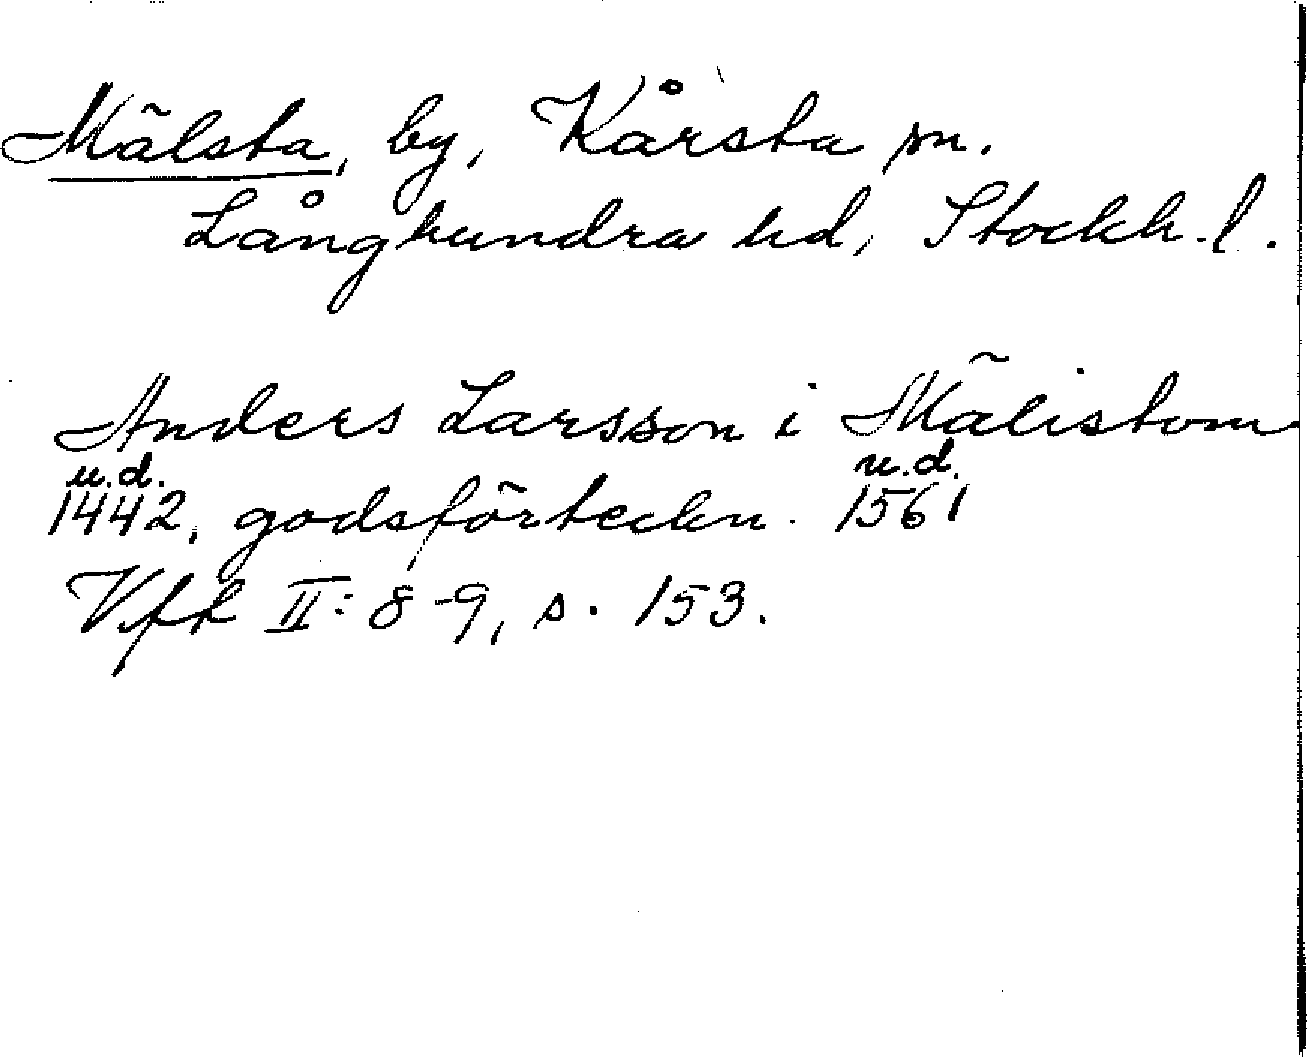 Mälsta, by, Kårsta sn.
Långhundra hd, Stockh. l.
Anders Larsson i Mälistom
u.d. u.d.
1442, godsförteckn. 1561
Vft II: 8-9, s. 153.